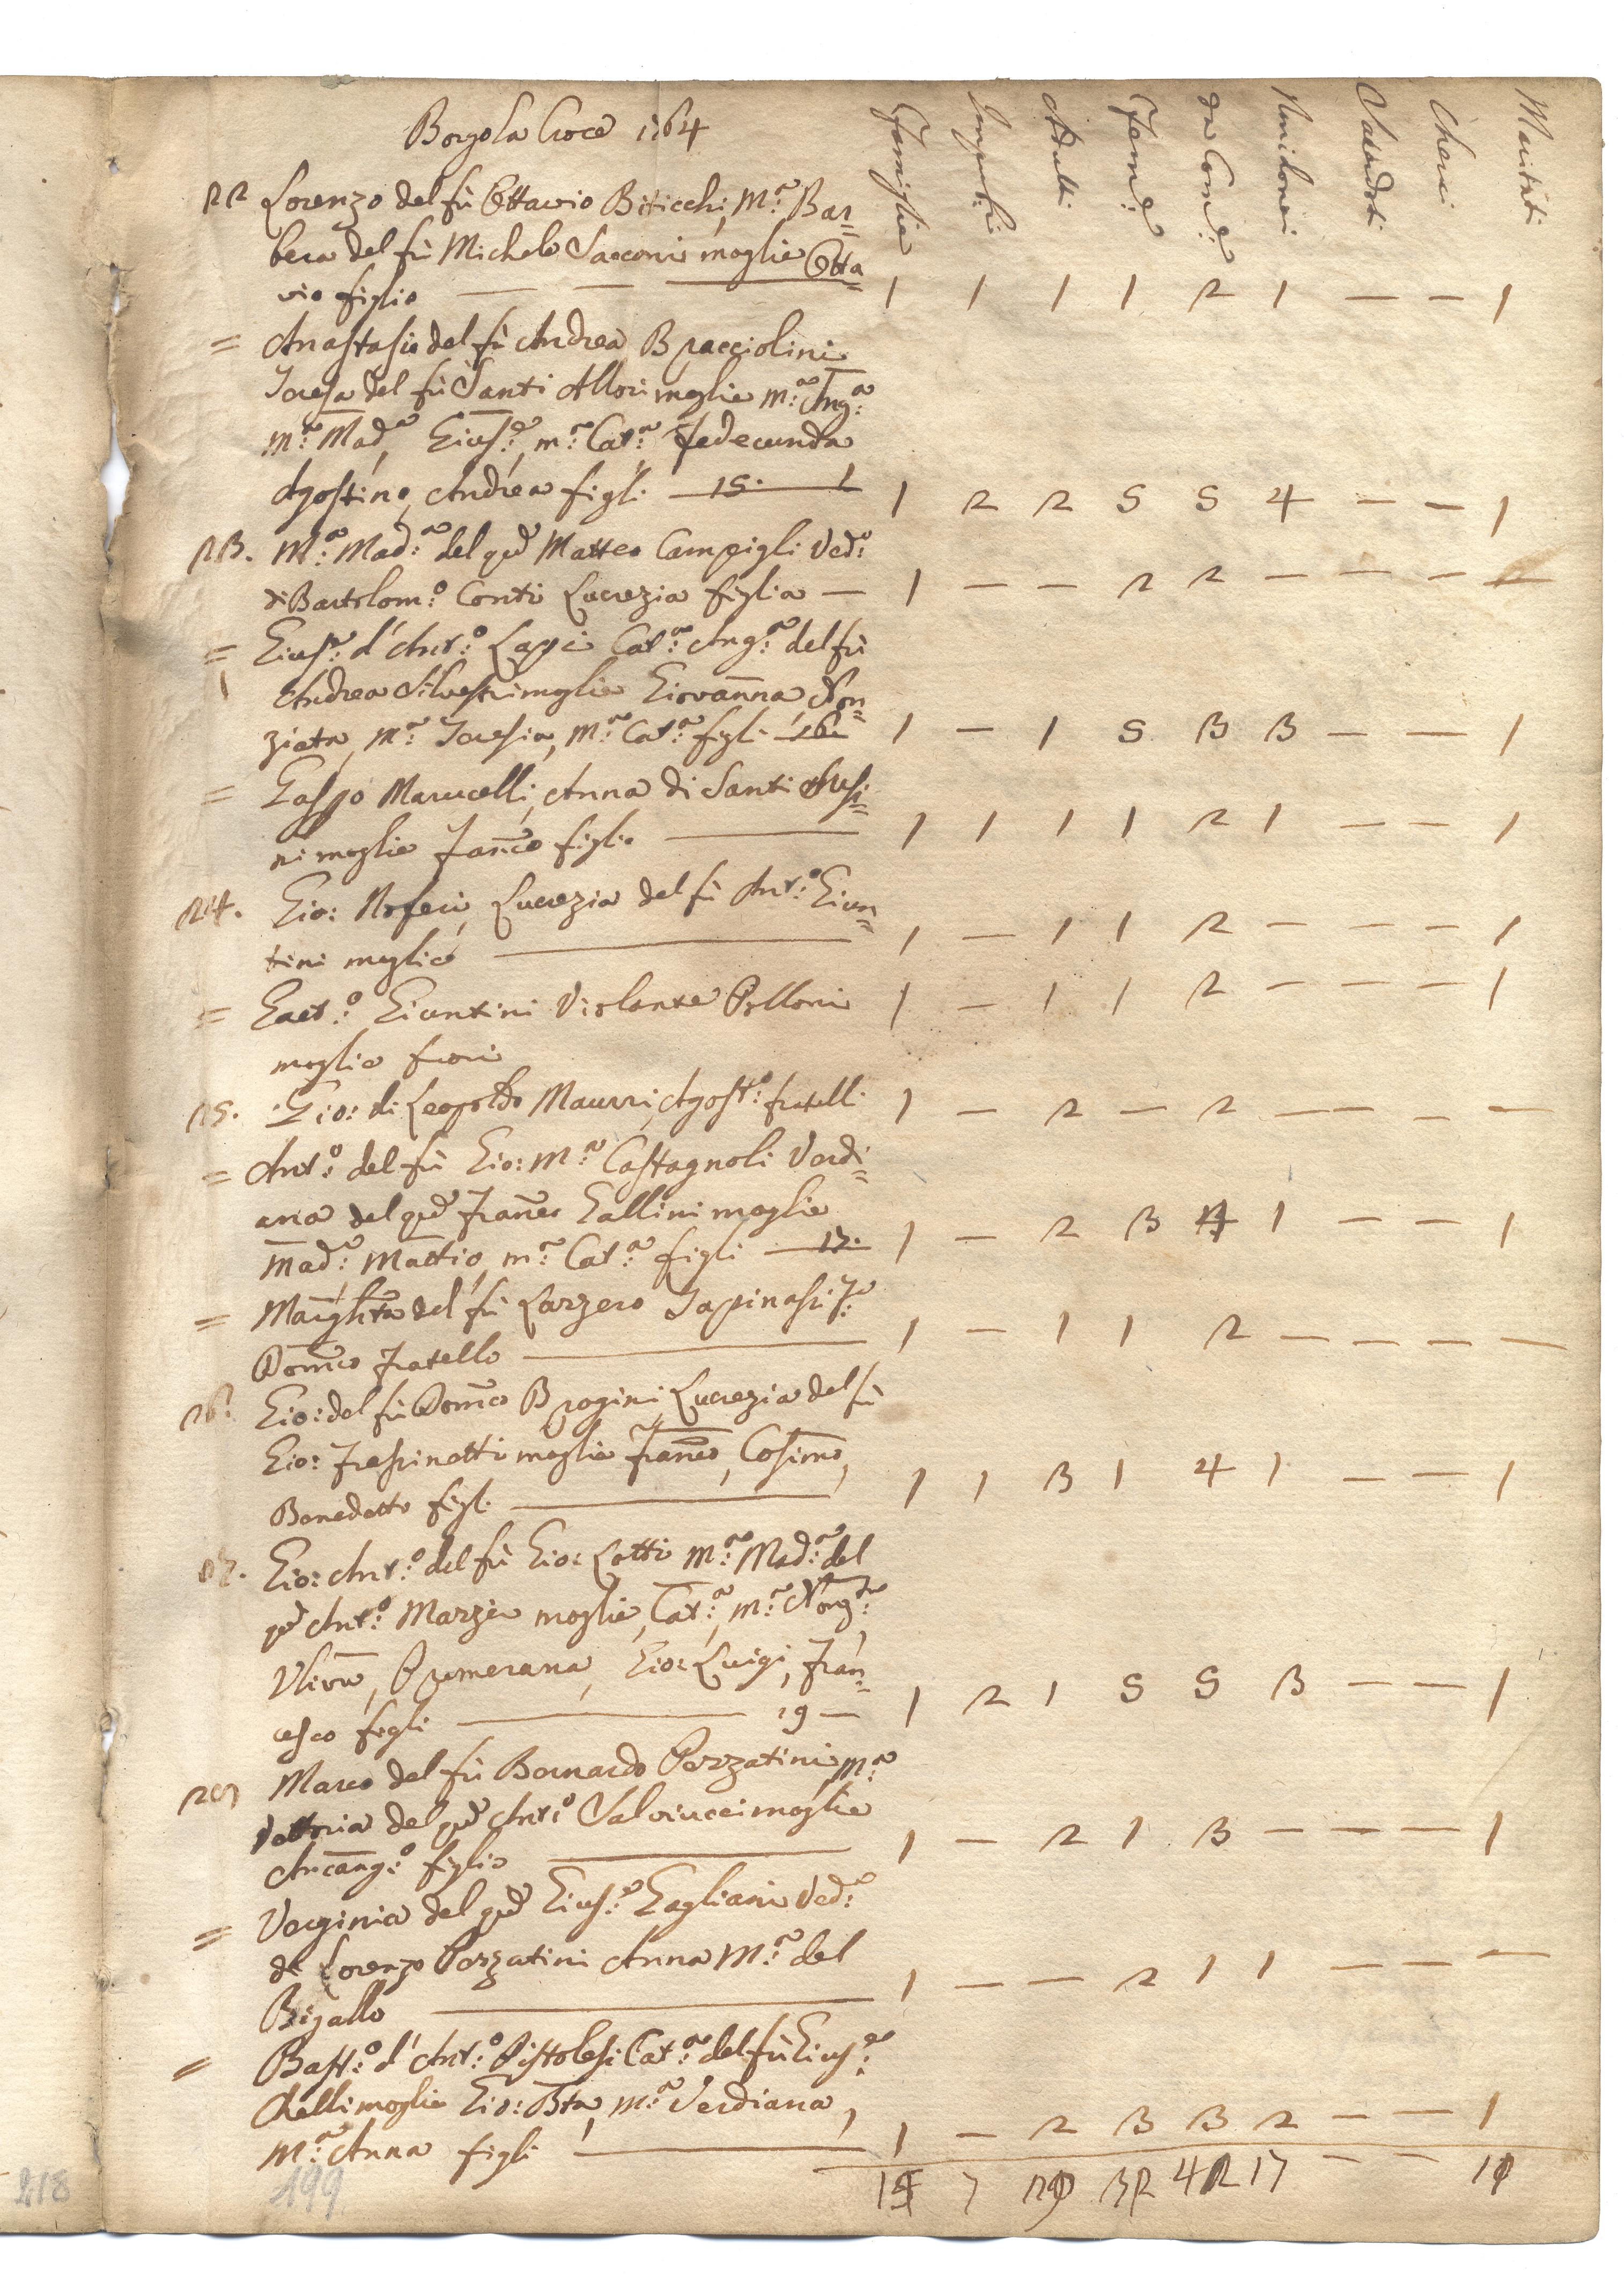 Borgo la Croce 1764
Famiglie Impub:i Adulti Fem:e da Com:e Nonidonei Sacerdoti Cherici Maritati
22 Lorenzo del fù Ottavio Biticchi, M:a Bar=
bera del fù Michele Sacconi moglie Otta=
vio figlio — — — 1 1 1 1 2 1 — — 1
= Anastasio del fù Andrea Bracciolini
Teresa del fù Santi Allori moglie m:a Ang:a
m:a Mad:a, Gius:e, m:a Cat:a Fedecunda
Agostino, Andrea figli — 15. 1 1 2 2 5 5 4 — — 1
23. M:a Mad:a del q:m Matteo Campigli Ved:a
di Bartolom:o Conti Lucrezia figlia — 1 — — 2 2 — — — —
= Gius:e d'Ant:o Lapi Cat:a Ang:a del fù
Andrea Silvestri moglie Giovanna, Non=
ziata, M:a Teresia, M:a Cat:a figli 16. 1 — 1 5 3 3 — — 1
= Gasp:o Marucelli, Anna di Santi
ni moglie Fran:co figlio — 1 1 1 1 2 1 — — 1
24. Gio: Noferi, Lucrezia del fù Ant:o Giun=
tini moglie — 1 — 1 1 2 — — — 1
= Gaet:o Giuntini Violante Polloni 1 — 1 1 2 — — — 1
moglie fuori
25. Gio: di Leopoldo Maurri, Agost:o fratelli 1 — 2 — 2 — — — —
= Ant:o del fù Gio: M:a Castagnoli Verdi=
ana del q:m Fran:co Gallini moglie
Mad:a, Mattio, m:a Cat:a figli — 17. 1 — 2 3 4 1 — — 1
= Margh:ta del fù Lazzero Tapinassi
Dom:co fratello — 1 — 1 1 2 — — — —
26. Gio: del fù Dom:co Brogini, Lucrezia del fù
Gio: Frassinetti moglie Fran:co, Cosimo,
Benedetto figli — 1 1 3 1 4 1 — — 1
27. Gio: Ant:o del fù Gio: Lotti M:a Mad:a del
q:m Ant:o Marzi moglie, Cat:a, m:a Nonz:ta
Uliva, Pumerana, Gio: Luigi, Fran=
cesco figli — 19 — 1 2 1 5 5 3 — — 1
28 Marco del fù Bernardo Pozzatini M:a
Vettoria del q:m Ant:o Salvucci moglie
Arcang:o figlio — 1 — 2 1 3 — — — 1
= Verginia del q:m Gius:e Gagliani Ved:a
di Lorenzo Pozzatini Anna M:a del
Bigallo — 1 — — 2 1 1 — — —
= Bast:o d'Ant:o Pistolesi Cat:a del fù Gius:e
Chelli moglie Gio: B:ta, M:a Verdiana,
M:a Anna figli — 1 — 2 3 3 2 — — 1
7 32 42 17 — —
218
199